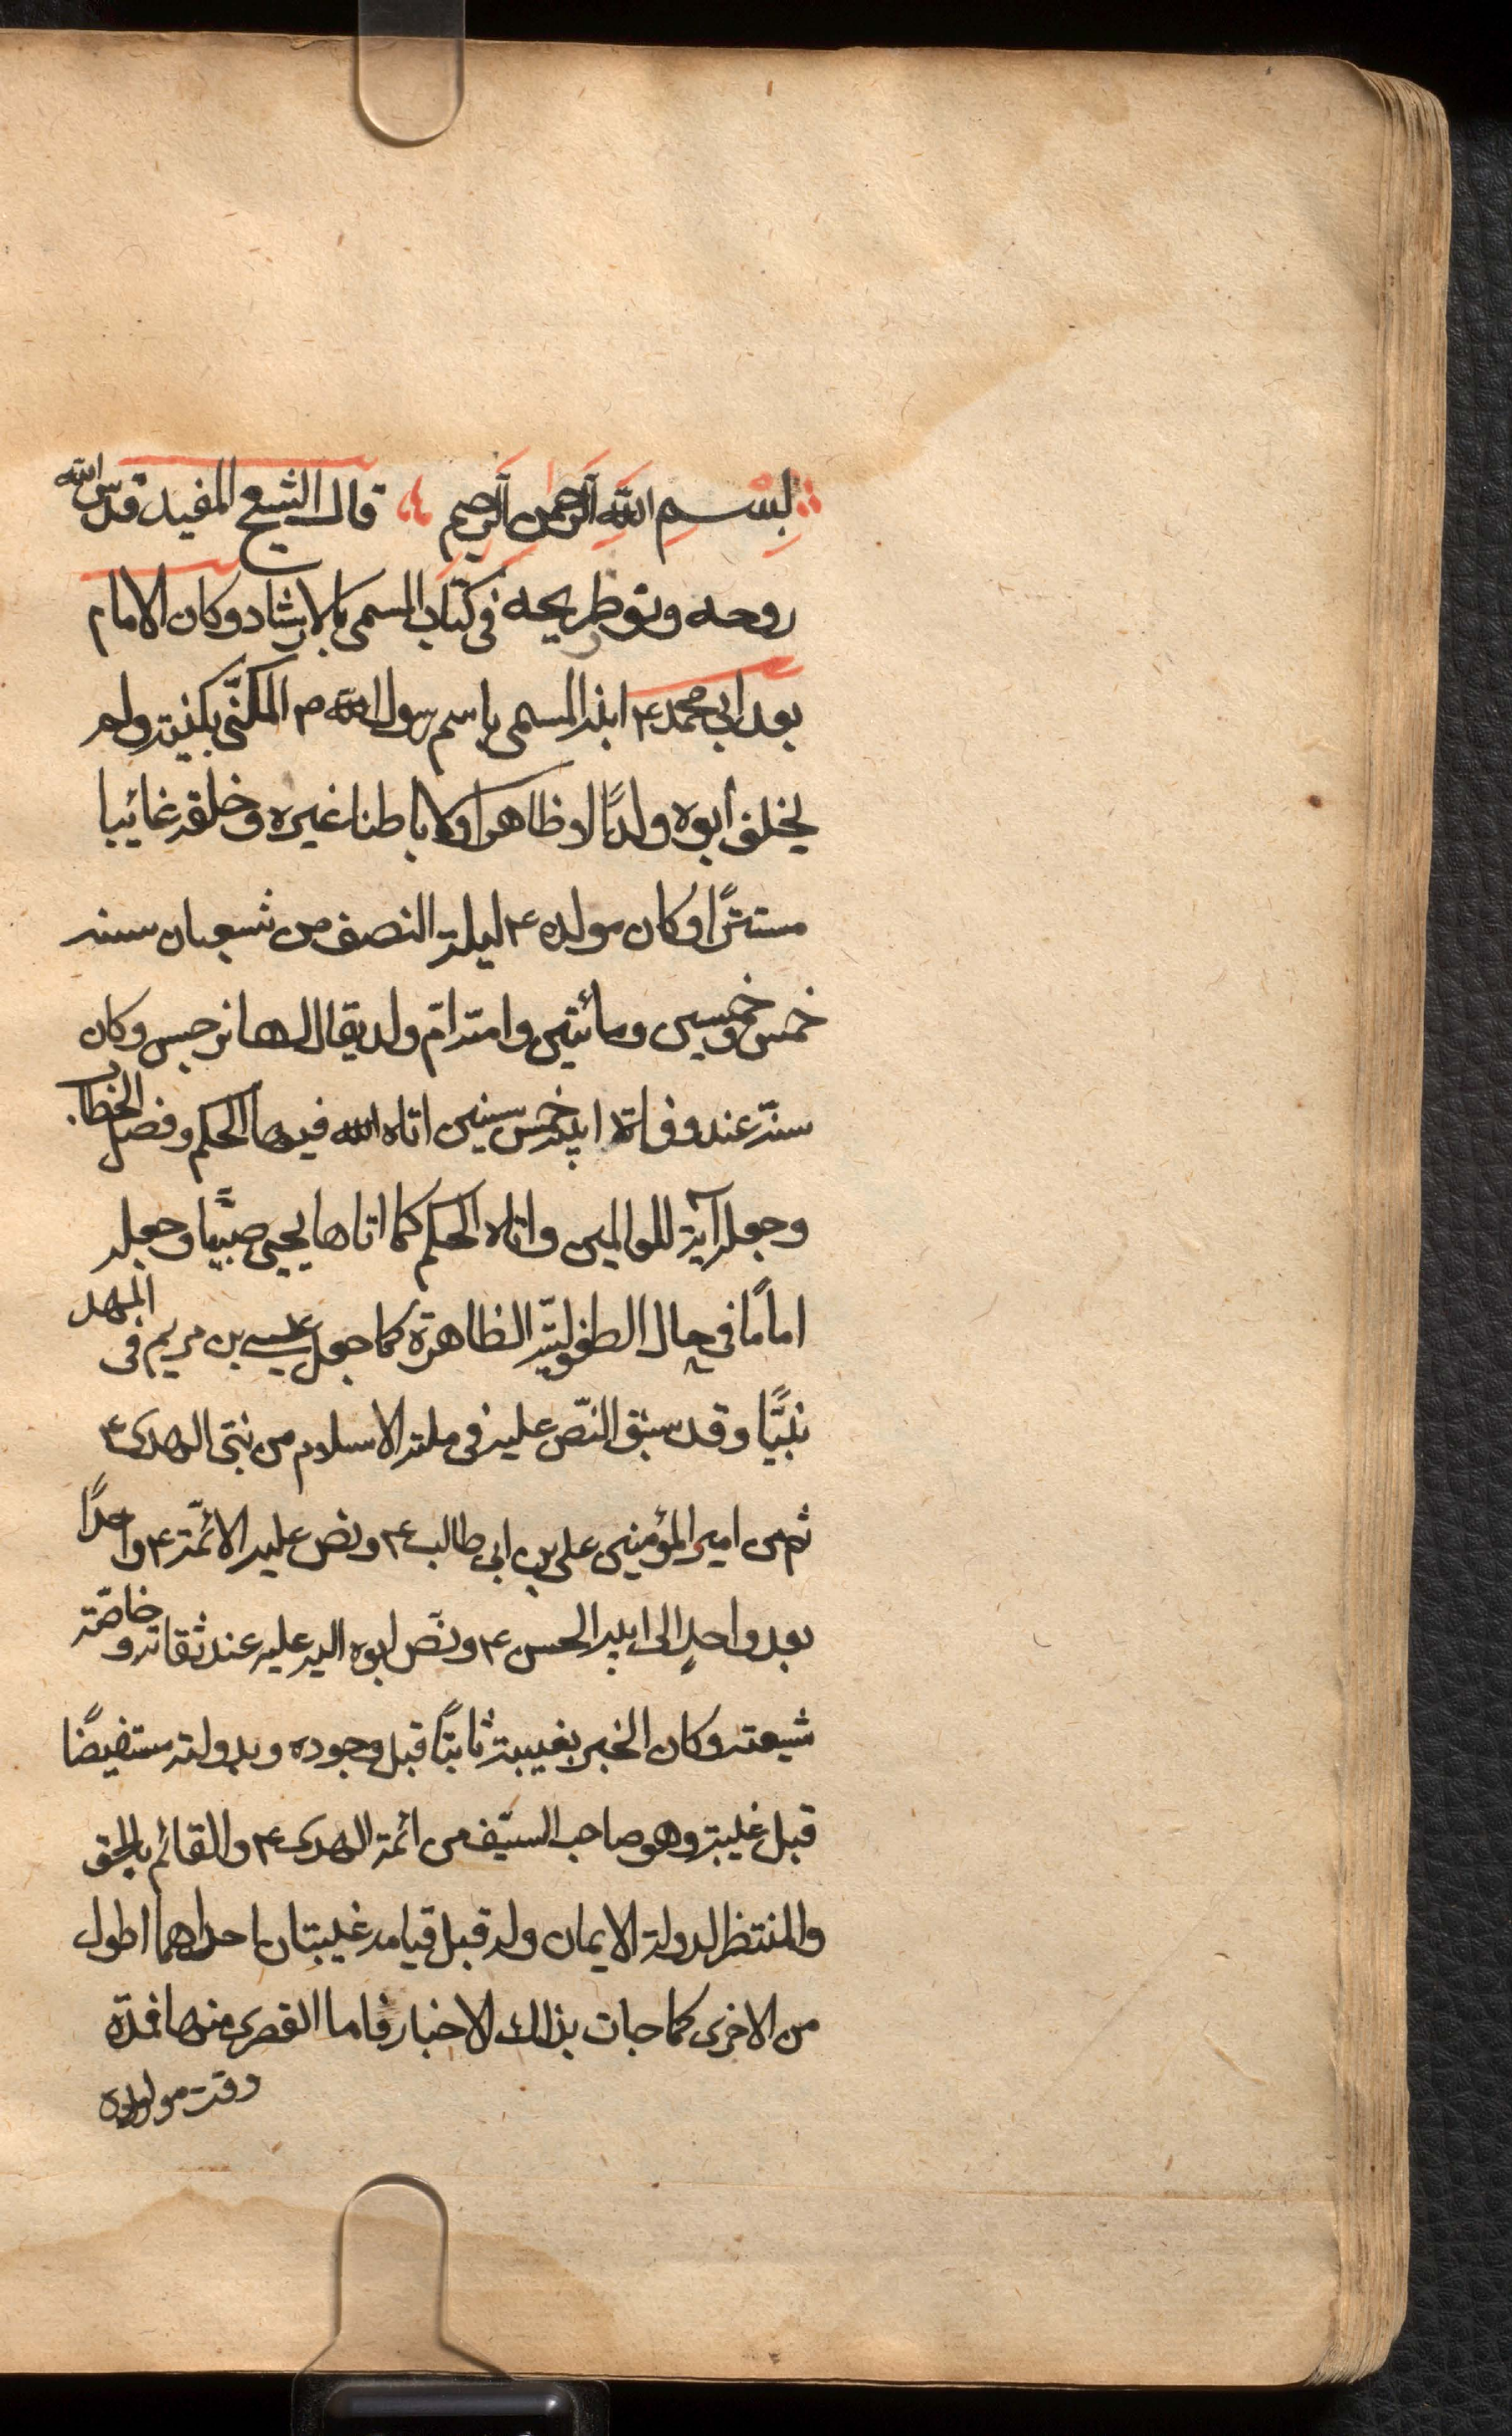 بسم الله الرحمن الرحيم قال الشيخ المفيد قدس الله
روحه ونور ضريحه في كتاب المسمى بالارشاد وكان الامام
بعد ابي محمد ع ابنه المسمى باسم رسول الله ص المكنّى بكنيته ولم
يخلف ابوه ولدًا لا ظاهرا ولا باطنا غيره وخلفه غائبا
مستترًا وكان مولده ع ليلة النصف من شعبان سنه
خمس وخمسين ومائتين وامه امّ ولد يقال لها نرجس وكان
سنّه عند وفاة ابيه خمس سنين اتاه الله فيها الحكم وفصل الخطاب
وجعله آية للعالمين واتاه الحكم كما اتاها يحيى صبيًّا وجعله
امامًا في حال الطفوليّة الظاهرة كما جعل عيسى بن مريم في المهد
نبيًّا وقد سبق النّص عليه في ملة الاسلام من نبيّ الهدى ع
ثم من امير المؤمنين علي بن ابي طالب ع ونص عليه الائمّة ع واحدًا
بعد واحدٍ الى ابيه الحسن ع ونصّ ابوه اليه عليه عند ثقاته وخاصّة
شيعته وكان الخبر بغيبته ثابتًا قبل وجوده وبدولته مستفيضًا
قبل غيبته وهو صاحب السيّف من ائمة الهدى ع والقائم بالحق
والمنتظر لدولة الايمان وله قبل قيامه غيبتان احداهما اطول
من الاخرى كما جات بذلك الاخبار فاما القصرى منها فمدة
وقت مولده